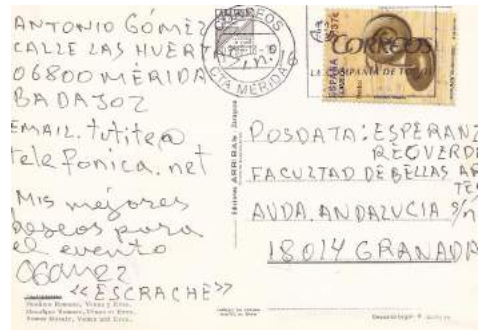 ANTONIO GÓMEZ
CALLE LAS HUERTAS
06800 MÉRIDA
BADAJOZ
EMAIL. tutite@
telefonica.net
Mis mejores
deseos para
el evento
AGómez
<<ESCRACHE>>
CORREOS
MÉRIDA
ESPAÑA
CORREOS
LA COMPAÑIA DE
Ediciones ARRIBAS, Zaragoza
POSDATA: ESPERANZ
RECUERDE
FACULTAD DE BELLAS AR
TES
AVDA. ANDALUCIA S/n
18014 GRANADA